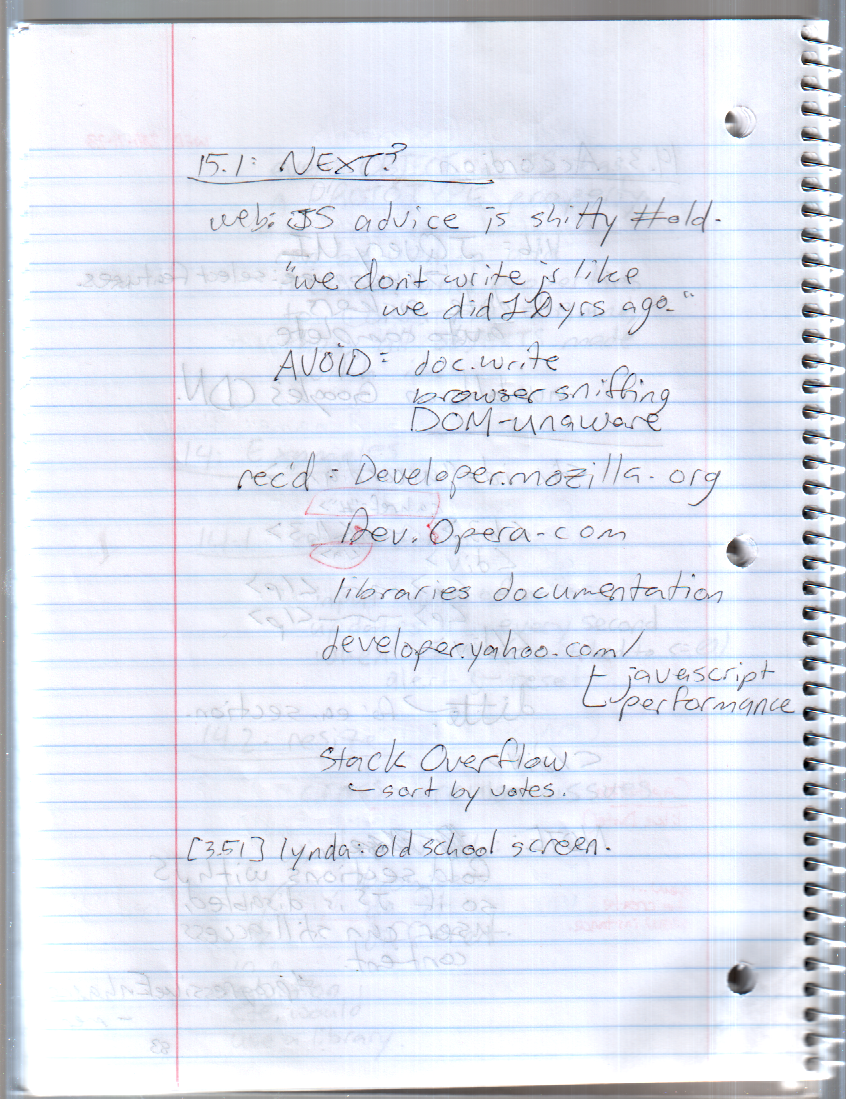 15.1: NEXT?
web: JS advice is shitty #old.
"we don't write js like
we did 10 yrs ago."
AVOID: doc.write
browser sniffing
DOM-unaware
rec'd: Developer.mozilla.org
Dev.Opera.com
libraries documentation
developer.yahoo.com/
javascript
performance
Stack Overflow
- sort by votes.
[3:51] lynda: old school screen.